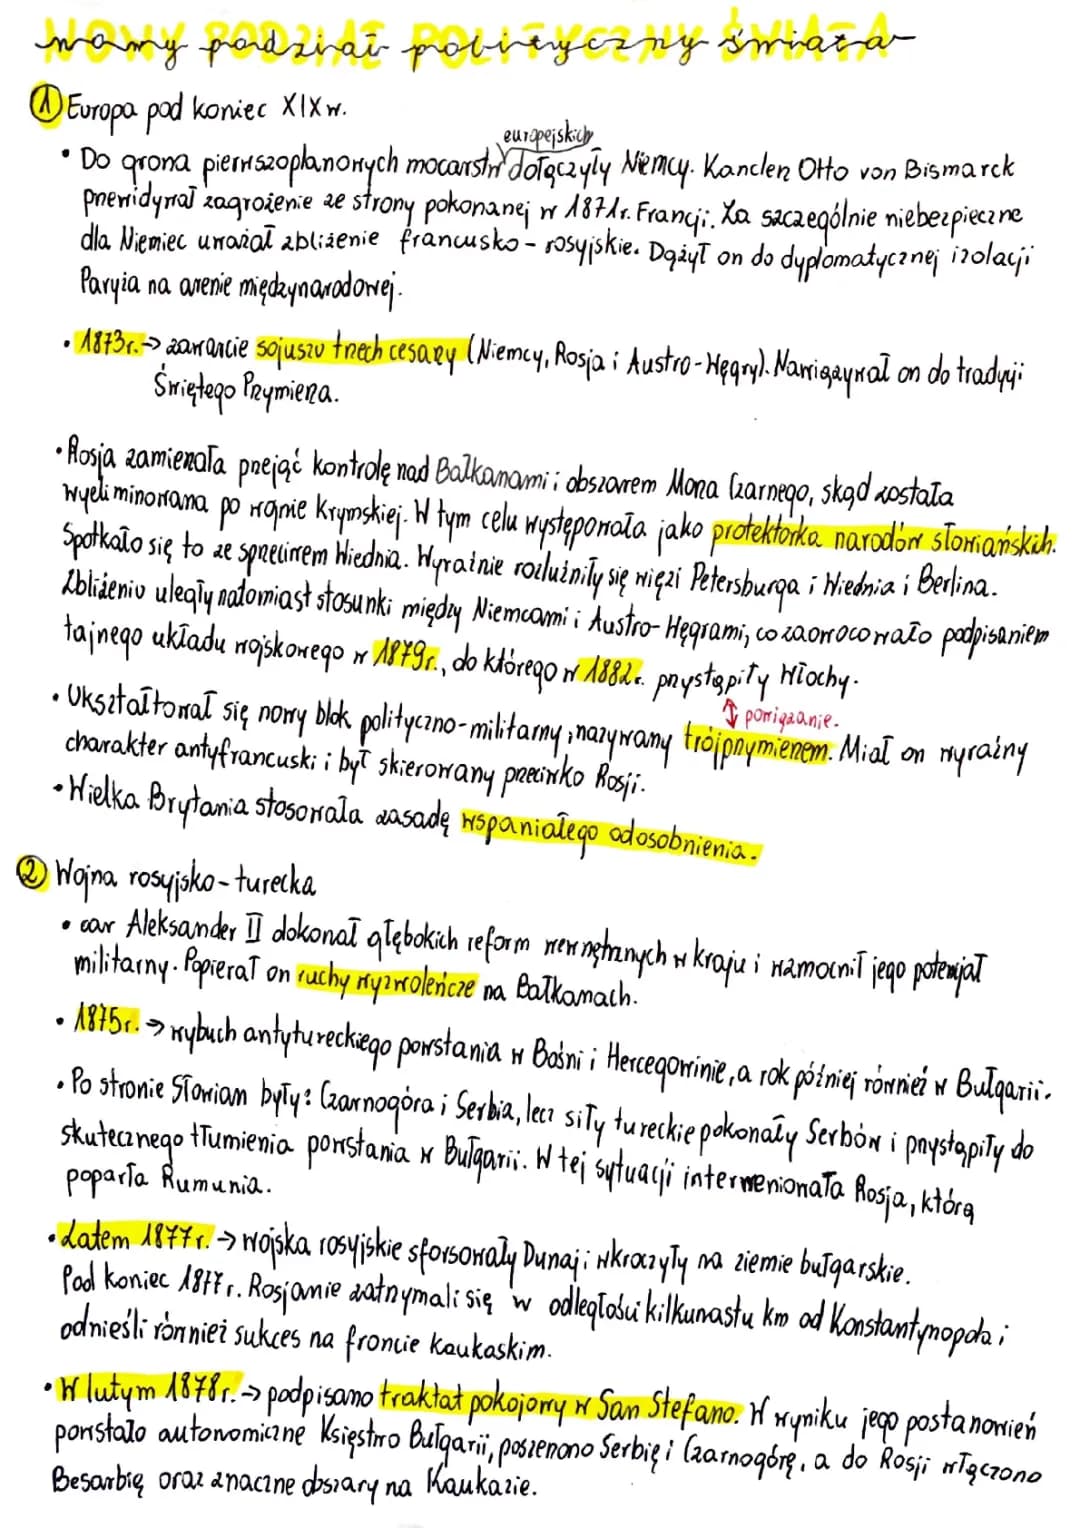 Nowy podział polityczny świata
① Europa pod koniec XIX w.
europejskich
• Do grona pierwszoplanowych mocarstw dołączyły Niemcy. Kanclerz Otto von Bismarck
przewidywał zagrożenie ze strony pokonanej w 1871r. Francji. Za szczególnie niebezpieczne
dla Niemiec uważał zbliżenie francusko-rosyjskie. Dążył on do dyplomatycznej izolacji
Paryża na arenie międzynarodowej.
• 1873r. → zawarcie sojuszu trzech cesarzy (Niemcy, Rosja i Austro-Węgry). Nawiązywał on do tradycji
Świętego Przymierza.
• Rosja zamierzała przejąć kontrolę nad Bałkanami i obszarem Morza Czarnego, skąd została
wyeliminowana po wojnie Krymskiej. W tym celu występowała jako protektorka narodów słowiańskich.
Spotkało się to ze sprzeciwem Wiednia. Wyraźnie rozluźniły się więzi Petersburga i Wiednia i Berlina.
Zbliżeniu uległy natomiast stosunki między Niemcami i Austro-Węgrami, co zaowocowało podpisaniem
tajnego układu wojskowego w 1879r., do którego w 1882r. przystąpiły Włochy.
↕ powiązanie.
• Ukształtował się nowy blok polityczno-militarny, nazywany trójprzymierzem. Miał on wyraźny
charakter antyfrancuski i był skierowany przeciwko Rosji.
• Wielka Brytania stosowała zasadę wspaniałego odosobnienia.
② Wojna rosyjsko-turecka
• car Aleksander II dokonał głębokich reform wewnętrznych w kraju i wzmocnił jego potencjał
militarny. Popierał on ruchy wyzwoleńcze na Bałkanach.
• 1875r. → wybuch antytureckiego powstania w Bośni i Hercegowinie, a rok później również w Bułgarii.
• Po stronie Słowian były: Czarnogóra i Serbia, lecz siły tureckie pokonały Serbów i przystąpiły do
skutecznego tłumienia powstania w Bułgarii. W tej sytuacji interweniowała Rosja, którą
poparła Rumunia.
• Latem 1877r. → wojska rosyjskie sforsowały Dunaj i wkroczyły na ziemie bułgarskie.
Pod koniec 1877r. Rosjanie zatrzymali się w odległości kilkunastu km od Konstantynopola i
odnieśli również sukces na froncie kaukaskim.
• W lutym 1878r. → podpisano traktat pokojowy w San Stefano. W wyniku jego postanowień
powstało autonomiczne Księstwo Bułgarii, poszerzono Serbię i Czarnogórę, a do Rosji włączono
Besarbię oraz znaczne obszary na Kaukazie.